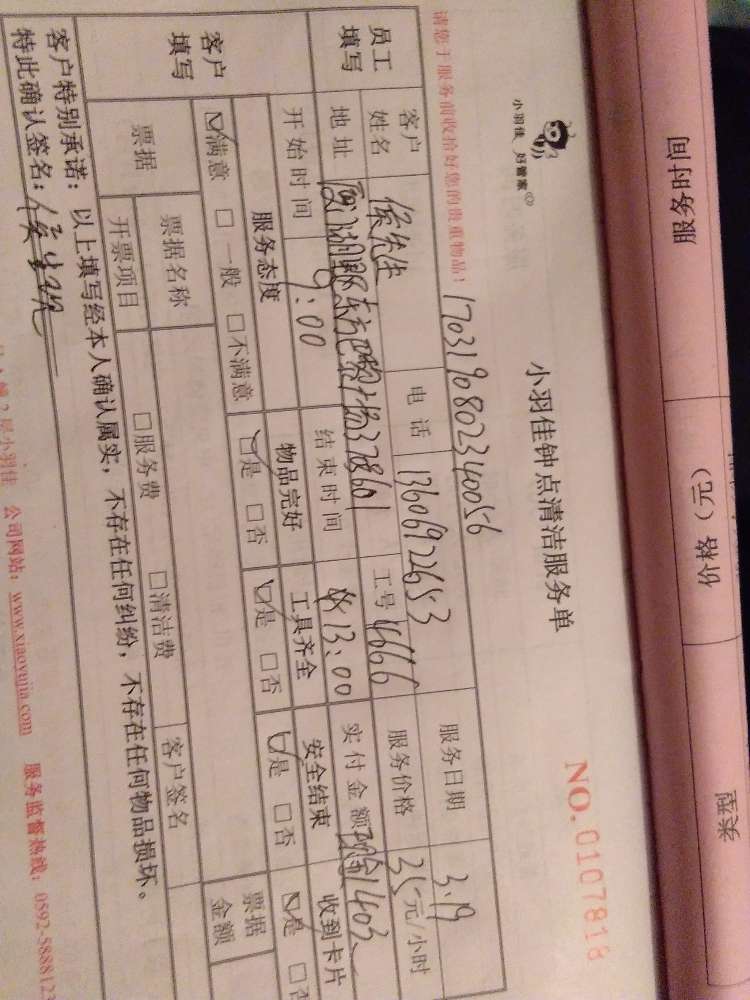 服务时间 价格（元） 类型
小羽佳 好管家
小羽佳钟点清洁服务单
NO.0107818
请您于服务前收拾好您的贵重物品！
1703190802340056
员工填写 客户姓名 侯先生 电话 13606922653 服务日期 3.19
地址 工号 4666 服务价格 35元/小时
开始时间 9:00 结束时间 13:00 实付金额 140
客户填写 服务态度 物品完好 工具齐全 安全结束 收到卡片
☑满意 □一般 □不满意 ☑是 □否 ☑是 □否 ☑是 □否 ☑是 □否
票据 票据名称 □服务费 □清洁费 客户签名 票据金额
开票项目
客户特别承诺：以上填写经本人确认属实，不存在任何纠纷，不存在任何物品损坏。
特此确认签名：
小羽佳 公司网站：www.xiaoyujia.com 服务监督热线：0592-5888123